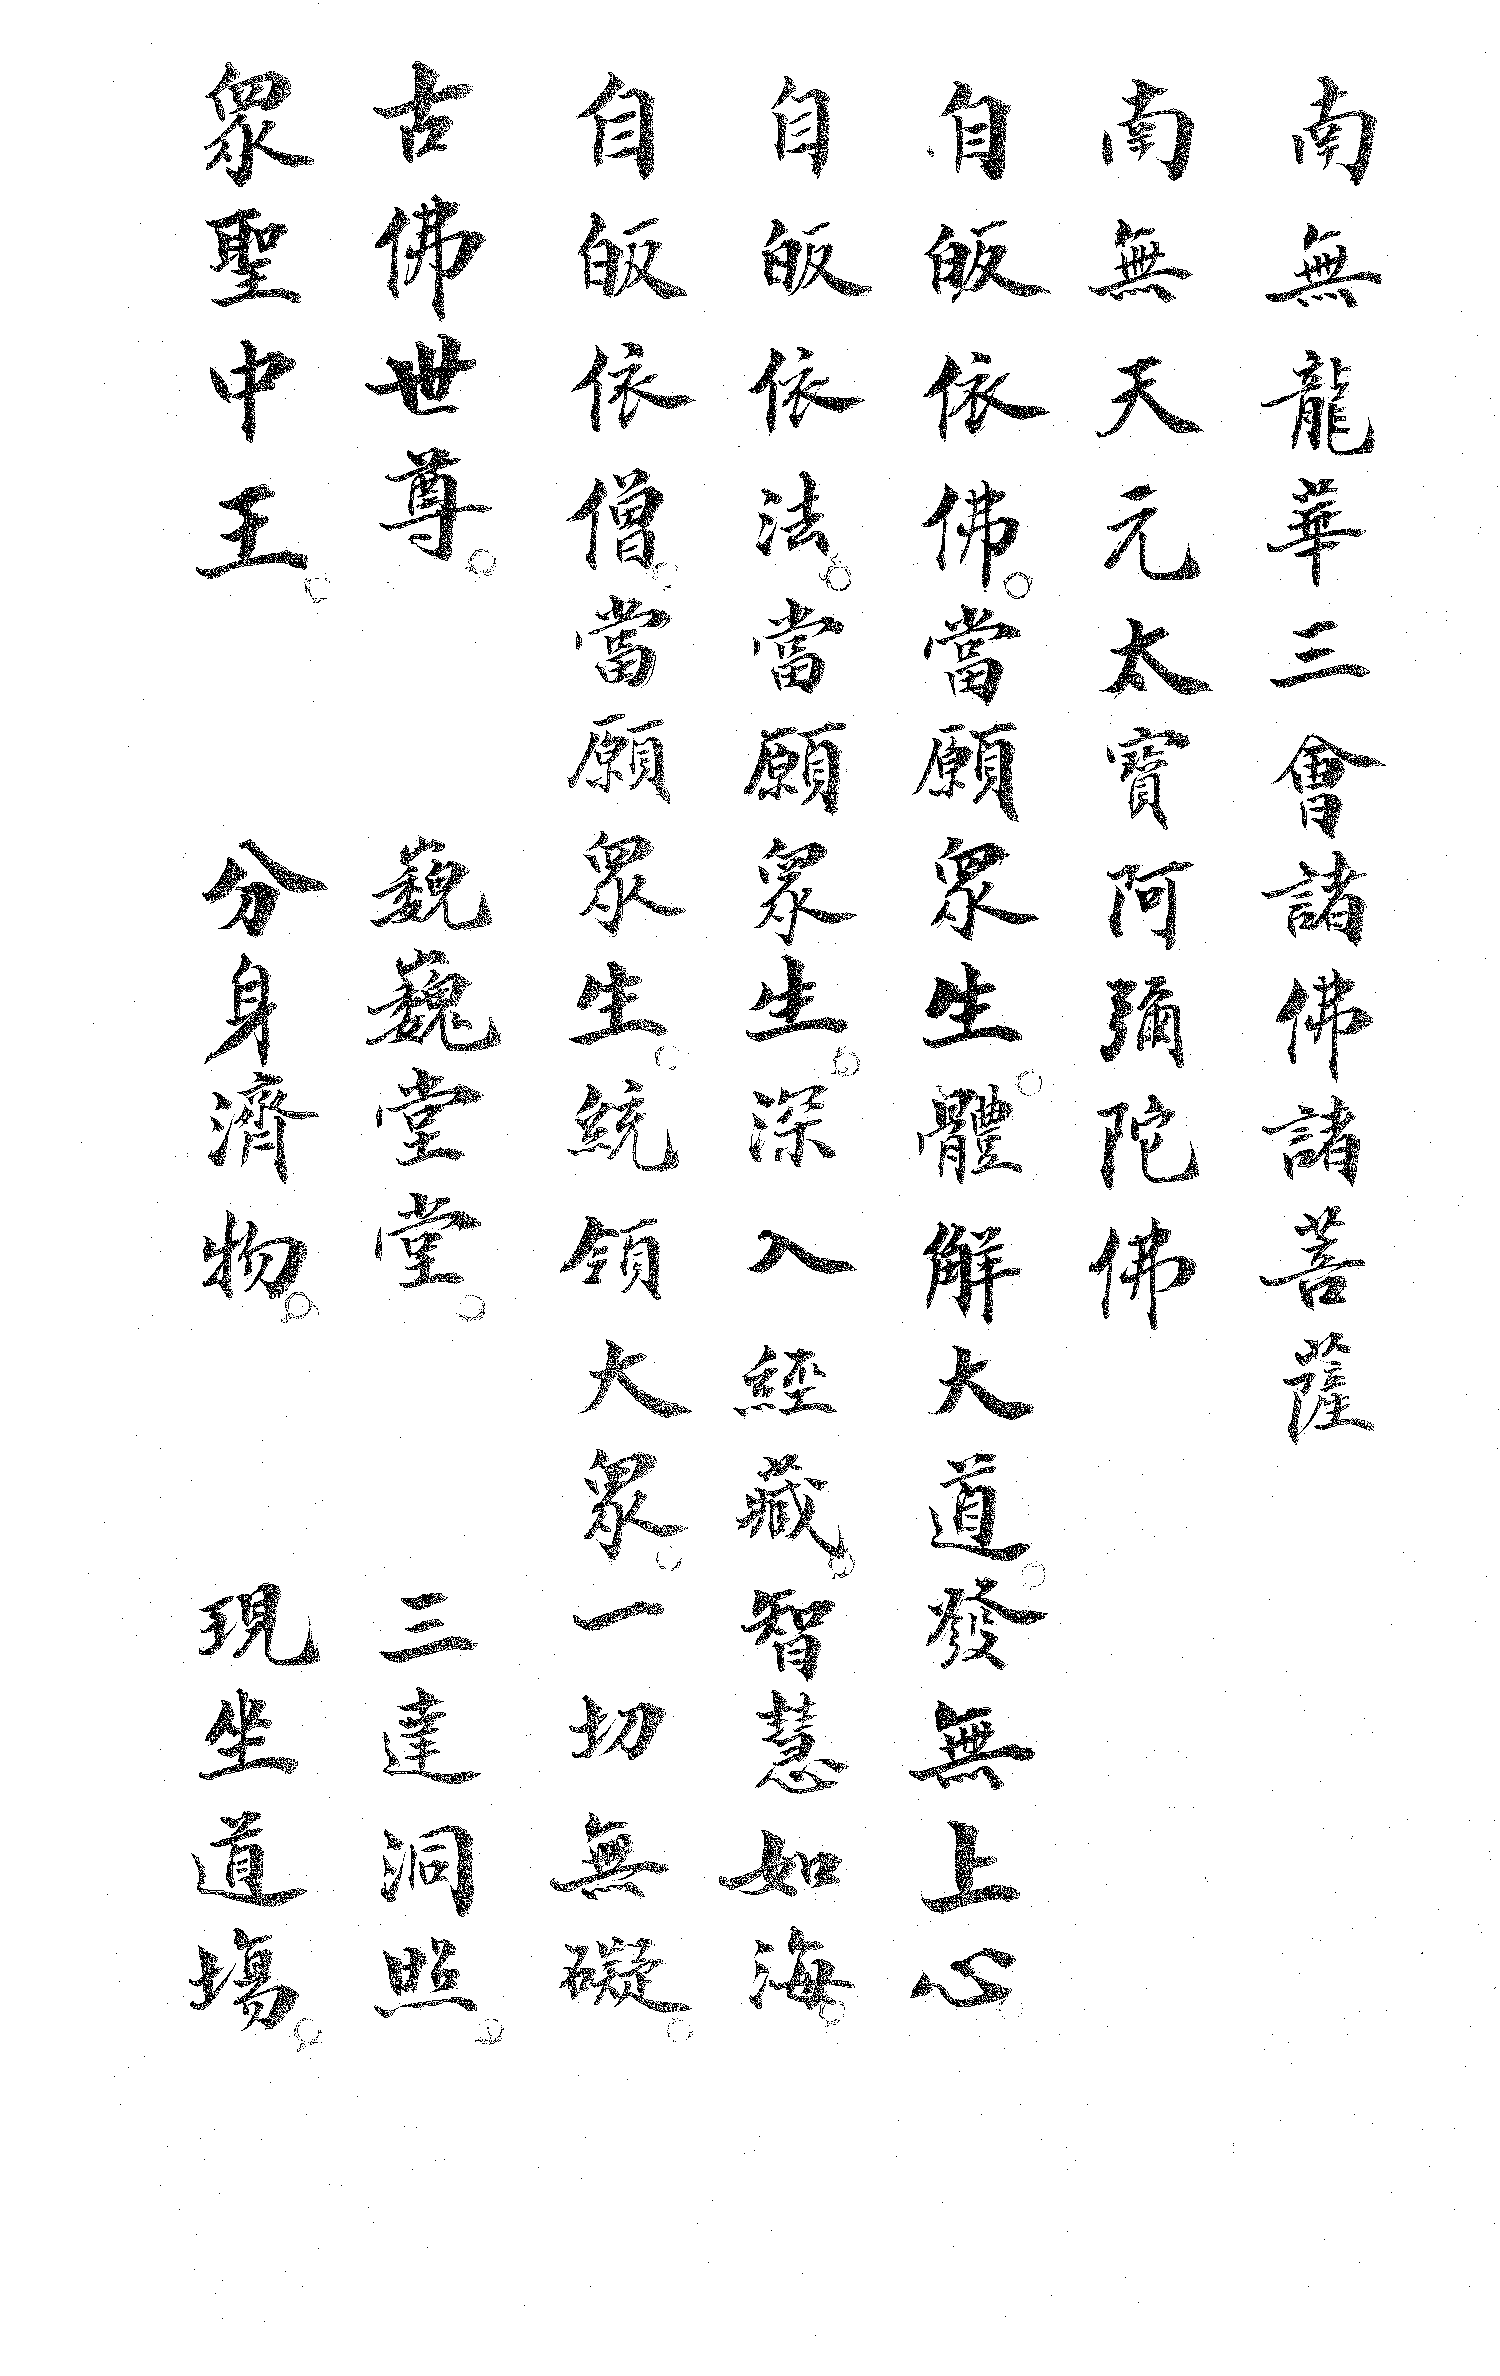 南無龍華三會諸佛諸菩薩
南無天元太寳阿彌陀佛
自皈依佛。當願眾生。體解大道。發無上心
自皈依法。當願眾生。深入經藏。智慧如海。
自皈依僧。當願眾生。統領大眾。一切無礙。
古佛世尊。 巍巍堂堂。 三達洞照。
眾聖中王。 分身濟物。 現坐道場。